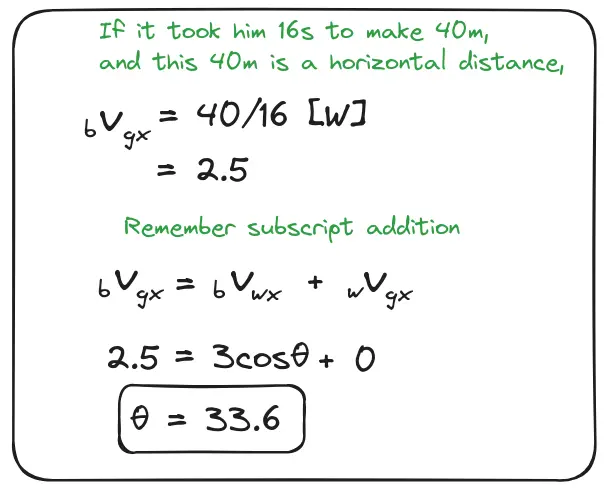 If it took him 16s to make 40m,
and this 40m is a horizontal distance,
bVgx = 40/16 [W]
= 2.5
Remember subscript addition
bVgx = bVwx + wVgx
2.5 = 3cosθ + 0
θ = 33.6